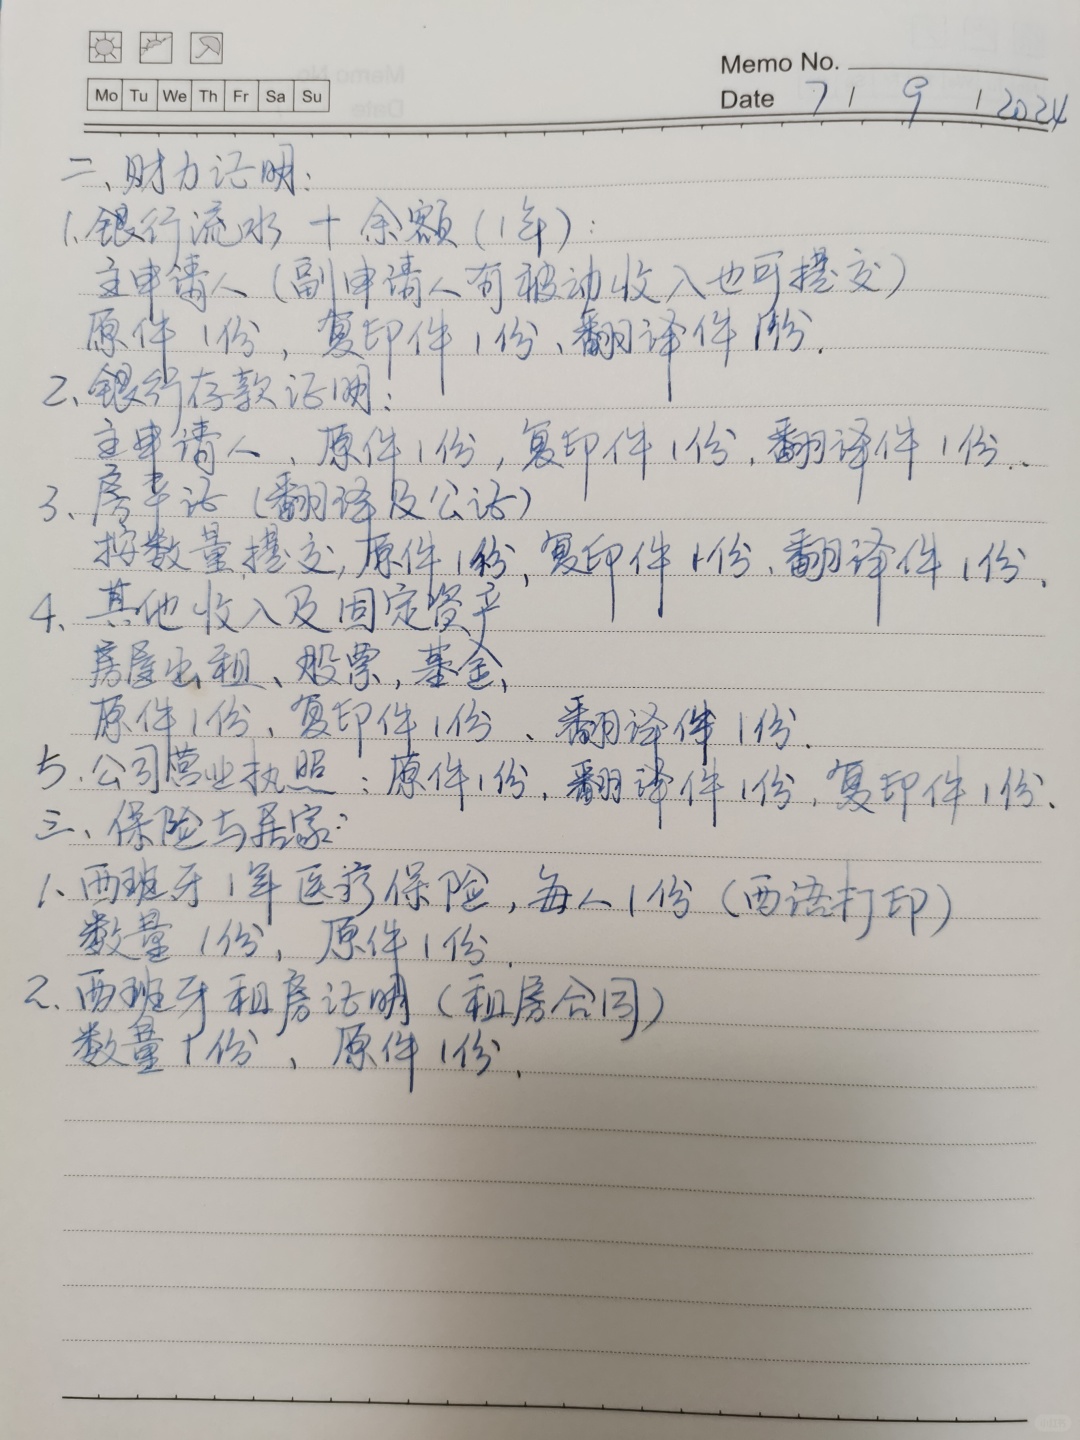 Memo No.
Mo Tu We Th Fr Sa Su
Date 7 / 9 / 2024
二、财力证明:
1.银行流水 + 余额(1年):
主申请人(副申请人有被动收入也可提交)
原件1份,复印件1份、翻译件1份.
2、银行存款证明:
主申请人、原件1份,复印件1份.翻译件1份.
3、房本证(翻译及公证)
按数量提交,原件1份,复印件1份、翻译件1份.
4、其他收入及固定资产
房屋出租、股票,基金、
原件1份、复印件1份、翻译件1份.
5.公司营业执照:原件1份.翻译件1份,复印件1份.
三、保险与居家:
1、西班牙1年医疗保险,每人1份(西语打印)
数量1份,原件1份.
2、西班牙租房证明(租房合同)
数量1份、原件1份.